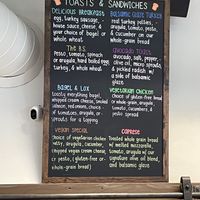 TOASTS & SANDWICHES
DELICIOUS BREAKFAST
egg, turkey sausage,
house sauce, cheese, &
your choice of bagel or
whole wheat.
THE B.S.
Pesto, tomato, spinach
or arugula, hard boiled eggs,
turkey, & whole wheat.
BAGEL & LOX
toasty everything bagel,
whipped cream cheese, smoked
salmon, red onions, choice
of tomatoes, arugula, or
sprouts for a topping
VEGAN SPECIAL
choice of vegetarian chicken
patty, arugula, cucumber,
whipped vegan cream cheese,
or pesto, (gluten-free or
whole-grain bread).
BALSAMIC GLAZE TURKEY
real turkey patties,
arugula, tomato, pesto,
& cucumber on our
whole-grain bread
AVOCADO TOAST
avocado, salt, pepper,
olive oil, micro sprouts,
& pickled radish w/
a side of balsamic
glaze.
VEGETARIAN CHICKEN
choice of gluten-free bread
or whole-grain, arugula,
tomato, cucumbers, &
pesto, spread.
CAPRESE
Toasted whole grain bread
w/ melted mozzarella,
tomato, arugula w/ our
signature olive oil blend,
and balsamic glaze